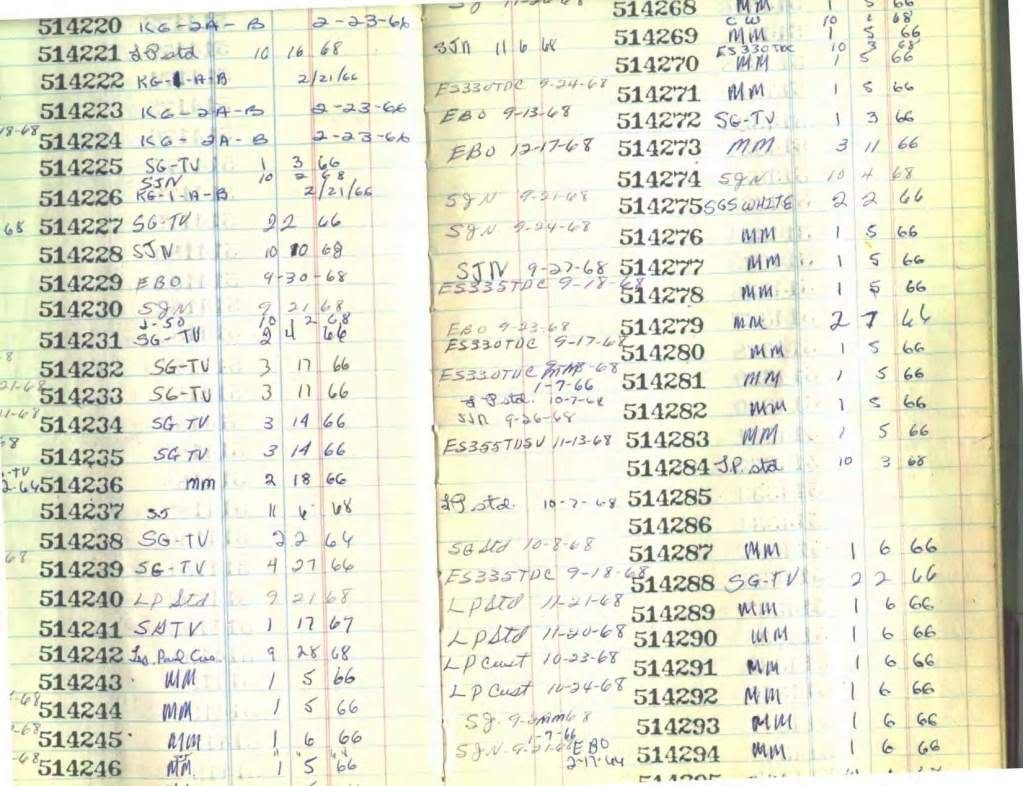 514220 KG-2A-B 2-23-66
514221 LP std 10 16 68
514222 KG-1-A-B 2/21/66
514223 KG-2A-B 2-23-66
18-68
514224 KG-2A-B 2-23-66
514225 SG-TV 1 3 66
SJN 10 2 68
514226 KG-1-A-B 2/21/66
68 514227 SG-TV 22 66
514228 SJN 10 10 68
514229 EBO 9-30-68
514230 SJN 9 21 68
J-50 10 2 68
514231 SG-TV 2 4 66
514232 SG-TV 3 17 66
514233 SG-TV 3 11 66
514234 SG TV 3 14 66
514235 SG TV 3 14 66
514236 mm 2 18 66
514237 SJ 11 6 68
514238 SG-TV 22 66
514239 SG-TV 4 27 66
514240 LP Std 9 21 68
514241 SATV 1 17 67
514242 Les Paul Cus. 9 28 68
514243 MM 1 5 66
514244 MM 1 5 66
514245 MM 1 6 66
514246 MM 1 5 66
514268 MM 1 5 66
CW 10 1 68
SJN 11 6 68 514269 MM 1 5 66
ES330TDC 10 3 68
514270 MM 1 5 66
ES330TDC 9-24-68 514271 MM 1 5 66
EBO 9-13-68 514272 SG-TV 1 3 66
EBO 12-17-68 514273 MM 3 11 66
514274 SJN 10 4 68
SJN 9-21-68 514275 SGS WHITE 2 2 66
SJN 9-24-68 514276 MM 1 5 66
SJN 9-27-68 514277 MM 1 5 66
ES335TDC 9-18-68 514278 MM 1 5 66
EBO 9-23-68 514279 MM 2 7 66
ES330TDC 9-17-68 514280 MM 1 5 66
ES330TDC 514281 MM 1 5 66
1-7-66
LP std. 10-7-68
SJN 9-26-68 514282 MM 1 5 66
ES355TDSV 11-13-68 514283 MM 1 5 66
514284 LP. std 10 3 68
LP std. 10-7-68 514285
514286
SG Std 10-8-68 514287 MM 1 6 66
ES335TDC 9-18-68 514288 SG-TV 2 2 66
LP Std 11-21-68 514289 MM 1 6 66
LP Std 11-20-68 514290 MM 1 6 66
LP Cust 10-23-68 514291 MM 1 6 66
LP Cust 10-24-68 514292 MM 1 6 66
SJ. 514293 MM 1 6 66
1-7-66
SJN EBO 514294 MM 1 6 66
2-17-66
514295